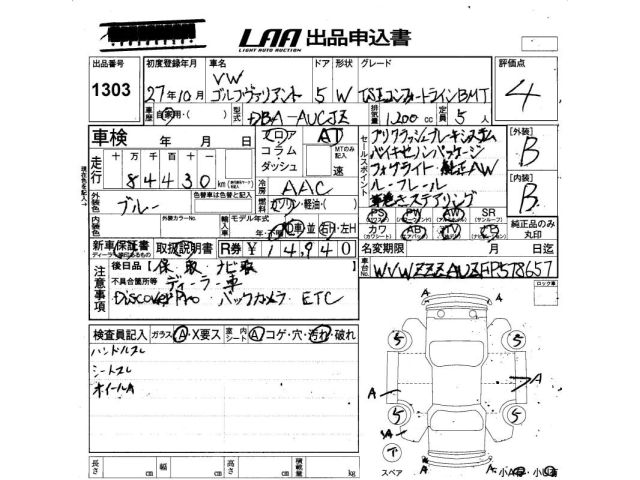 LAA 出品申込書
LIGHT AUTO AUCTION
出品番号 1303
初度登録年月 27年10月
車名 VW ゴルフヴァリアント
ドア 形状 5 W
グレード TSIコンフォートラインBMT
評価点 4
車歴 自家用・( )
型式 DBA-AUCJZ
排気量 1,200 cc
定員 5人
車検 年 月 日
フロア コラム ダッシュ
AT
MTのみ記入 速
セールスポイント
プリクラッシュブレーキシステム
バイキセノンパッケージ
フォグライト 純正AW
ルーフレール
革巻きステアリング
[外装] B
[内装] B
走行 十万千百十
84430 km
冷房 AAC
外装色 ブルー
色替車は色替と記入
燃料 ガソリン・軽油・( )
PS PW AW SR
カワ AB TV ナビ
純正品のみ丸印
内装色 外装カラーNo.
輸入車 モデル年式 年・不明
D車 並 右H・左H
新車保証書 取扱説明書 R券 ¥14,940
名変期限 月 日迄
車台No. WVWZZZAUZFP578657
注意事項
後日品 [保、取、ナビ取
不具合箇所等 ディーラー車
Discover Pro バックカメラ ETC
ロック車
検査員記入 ガラス A・X要ス 室内シート A コゲ・穴・汚れ・破れ
ハンドルスレ
シートスレ
ホイールA
5 5
A A
A A
5 5
スペア
A A
長さ cm 幅 cm 高さ cm 積載量 kg